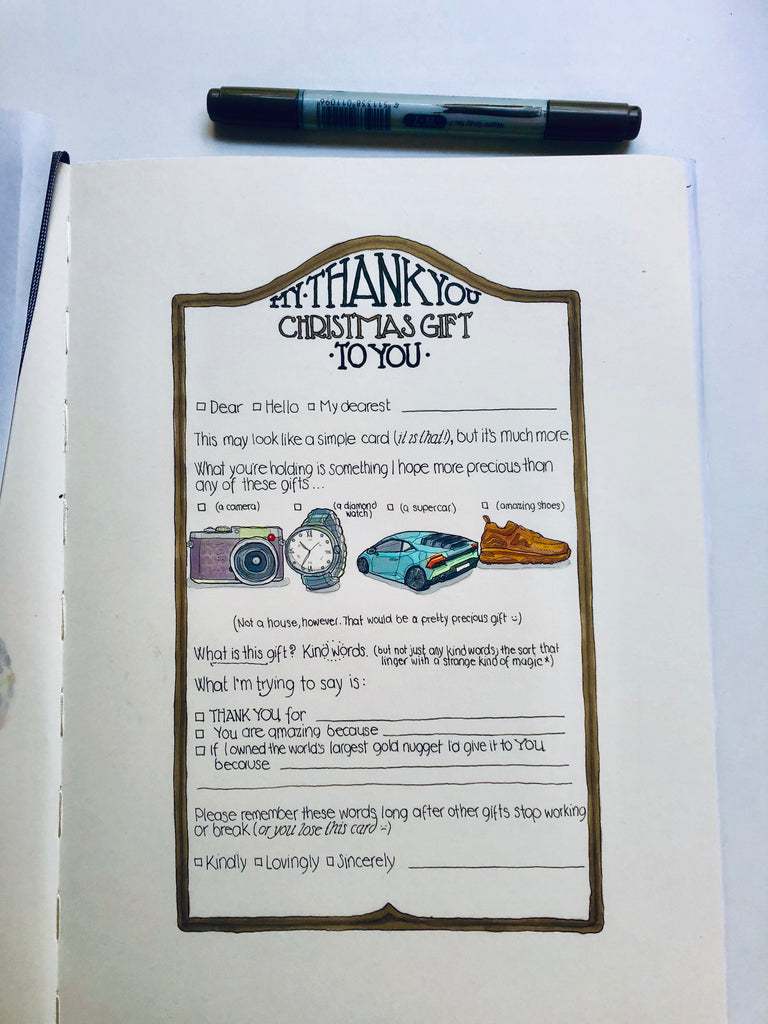 4 511338 011096
Warm Gray No.7
W-7
MY·THANK YOU
CHRISTMAS GIFT
·TO YOU·
Dear Hello My dearest
This may look like a simple card (it is that!), but it's much more.
What you're holding is something I hope more precious than
any of these gifts...
(a camera) (a diamond watch) (a supercar) (amazing shoes)
(Not a house, however. That would be a pretty precious gift :-))
What is this gift? Kind words. (but not just any kind words; the sort that
linger with a strange kind of magic*)
What I'm trying to say is:
THANK YOU for
You are amazing because
If I owned the world's largest gold nugget I'd give it to YOU
because
Please remember these words long after other gifts stop working
or break (or you lose this card :-))
Kindly Lovingly Sincerely